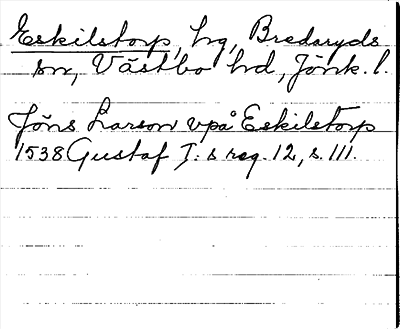 Eskilstorp, hg, Bredaryds
sn, Västbo hd, Jönk. l.
Jöns Larson vpå Eskilstorp
1538 Gustaf I:s reg. 12, s. 111.